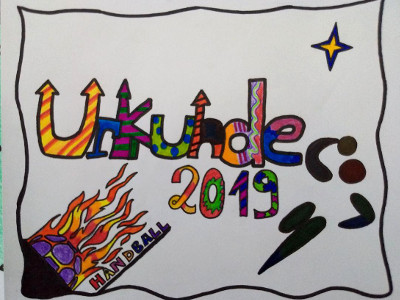 Urkunde
2019
HANDBALL